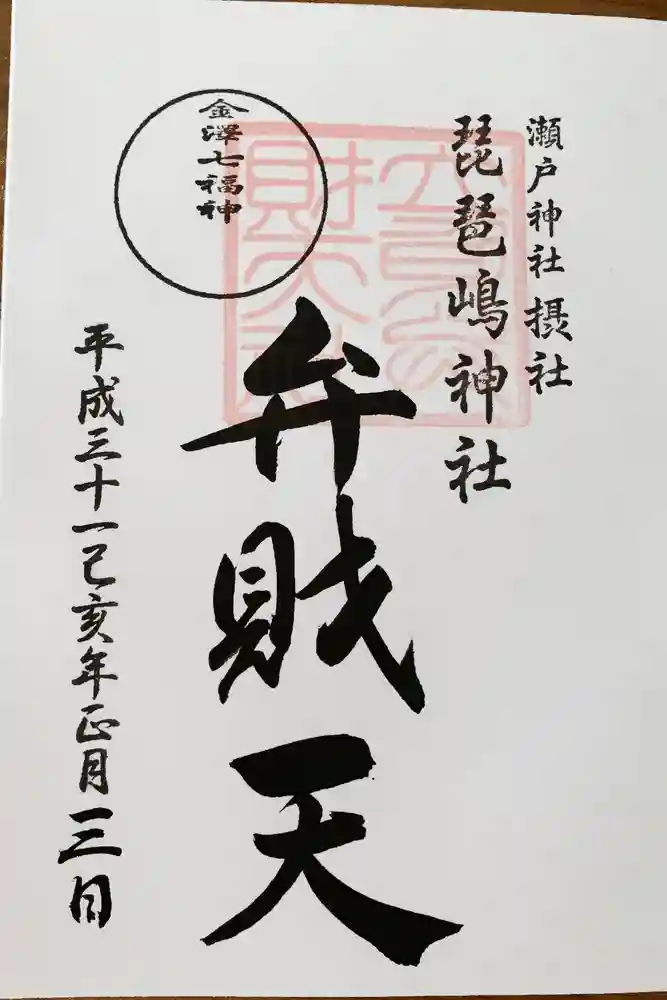 瀬戸神社 摂社
琵琶嶋神社
弁財天
金澤七福神
平成三十一己亥年正月三日